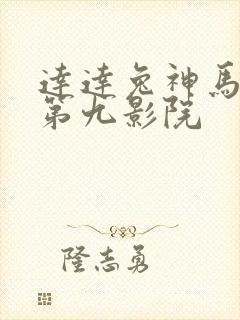 達達兔神馬
第九影院
隆志勇